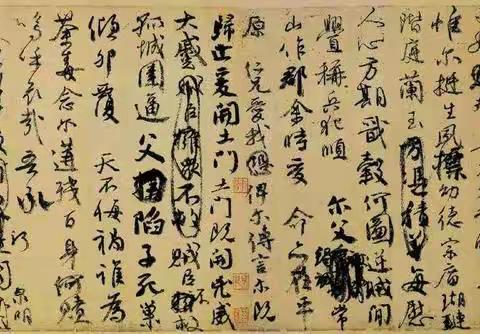 惟爾挺生夙標幼德宗廟瑚璉
階庭蘭玉方憑積善每慰
人心方期戩穀何圖逆賊間
釁稱兵犯順 爾父竭誠常
山作郡余時受 命亦在平
原 仁兄愛我俾爾傳言爾既
歸止爰開土門土門既開凶威
大蹙賊臣擁衆不救賊臣不救
孤城圍逼父陷子死巢
傾卵覆 天不悔禍誰為
荼毒念爾遘殘百身何贖
嗚呼哀哉 吾承
泉明